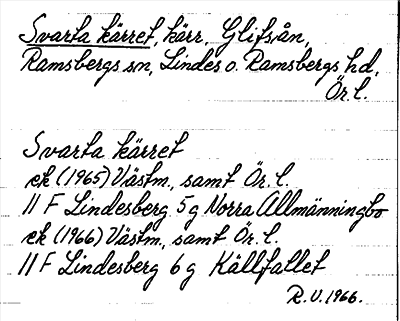 Svarta kärret, kärr, Glifsån,
Ramsbergs sn, Lindes o. Ramsbergs hd,
Ör. l.
Svarta kärret
ek (1965) Västm., samt Ör. l.
11 F Lindesberg 5 g Norra Allmänningbo
ek (1966) Västm., samt Ör. l.
11 F Lindesberg 6 g Källfallet
R. V. 1966.